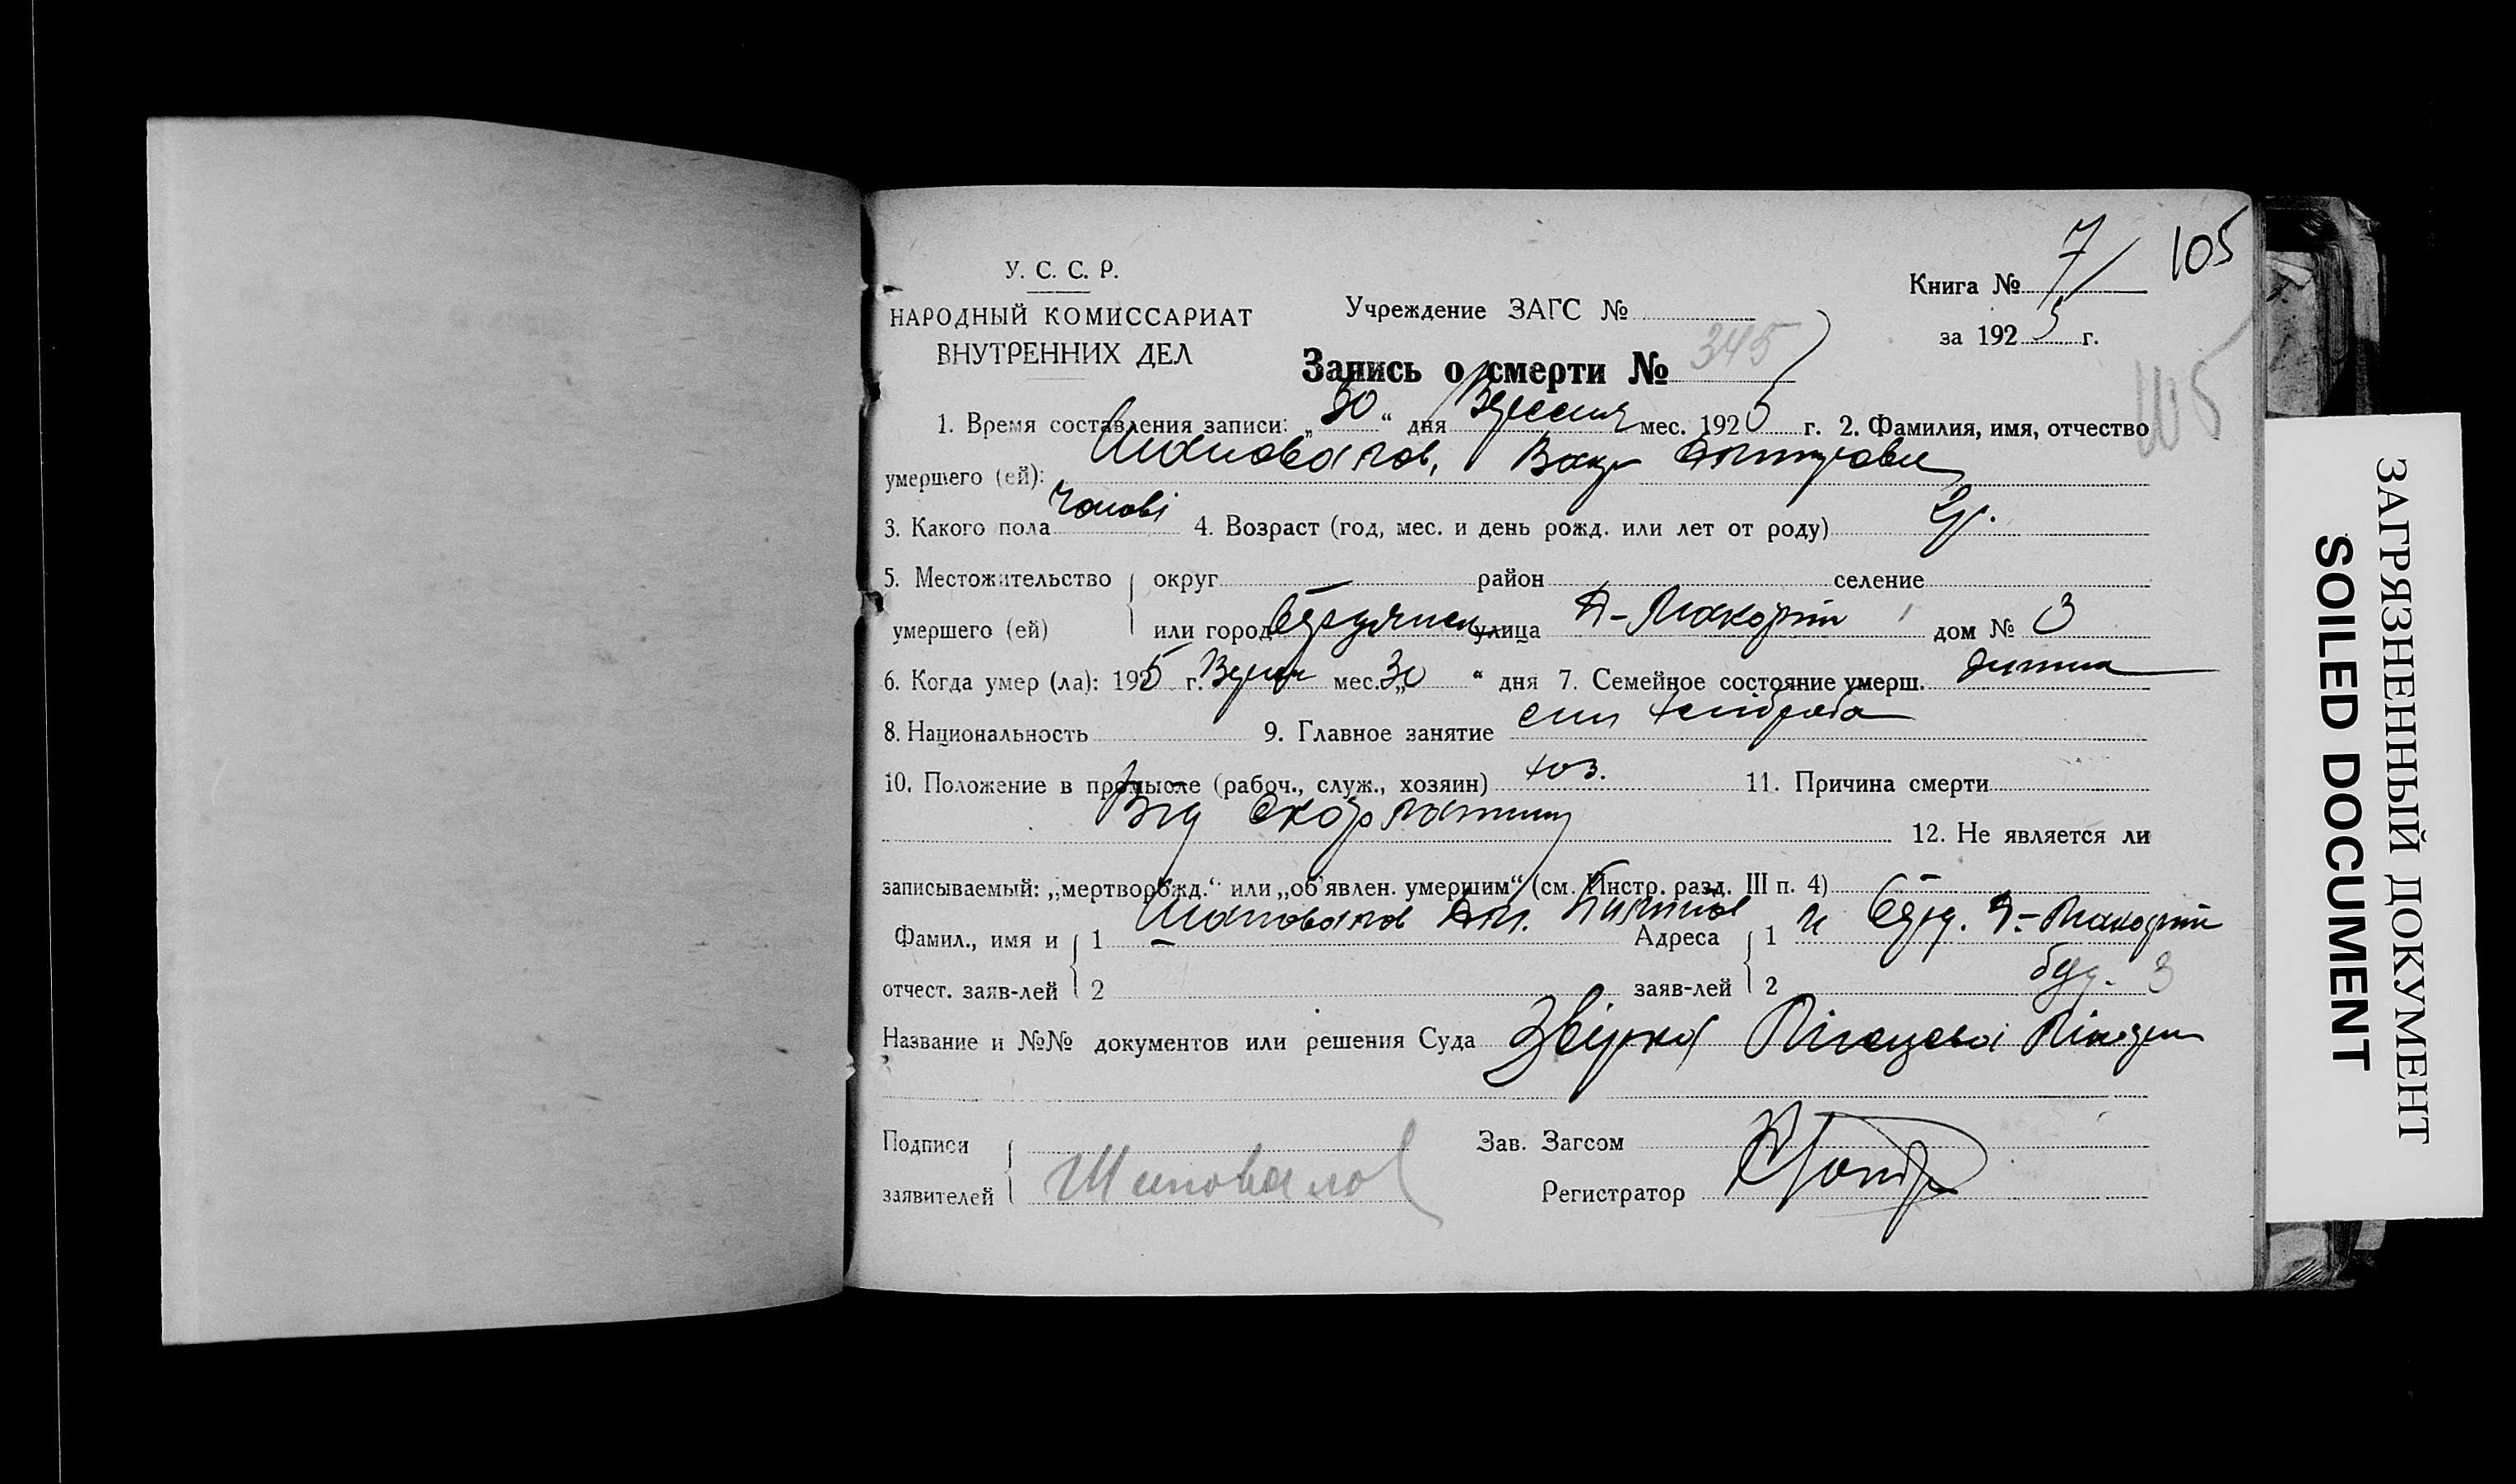 105
У. С. С. Р.
НАРОДНЫЙ КОМИССАРИАТ
ВНУТРЕННИХ ДЕЛ
Учреждение ЗАГС №
Книга № 7
за 1925 г.
Запись о смерти № 345
105
1. Время составления записи: „30“ дня Вересня мес. 1925 г. 2. Фамилия, имя, отчество
умершего (ей): Шаповалов,
3. Какого пола чолові 4. Возраст (год, мес. и день рожд. или лет от роду) 2 р.
5. Местожительство округ район селение
умершего (ей) или город улица дом № 3
6. Когда умер (ла): 1925 г. мес. „30“ дня 7. Семейное состояние умерш. дитина
8. Национальность 9. Главное занятие син хлібороба
10. Положение в промысле (рабоч., служ., хозяин) хоз. 11. Причина смерти
Від Скарлатини 12. Не является ли
записываемый: „мертворожд.“ или „об'явлен. умершим“ (см. Инстр. разд. III п. 4) —
Фамил., имя и 1 Шаповалов Адреса 1
отчест. заяв-лей 2 заяв-лей 2 буд. 3
Название и №№ документов или решения Суда
Подписи
заявителей Шаповалов
Зав. Загсом
Регистратор
ЗАГРЯЗНЕННЫЙ ДОКУМЕНТ
SOILED DOCUMENT